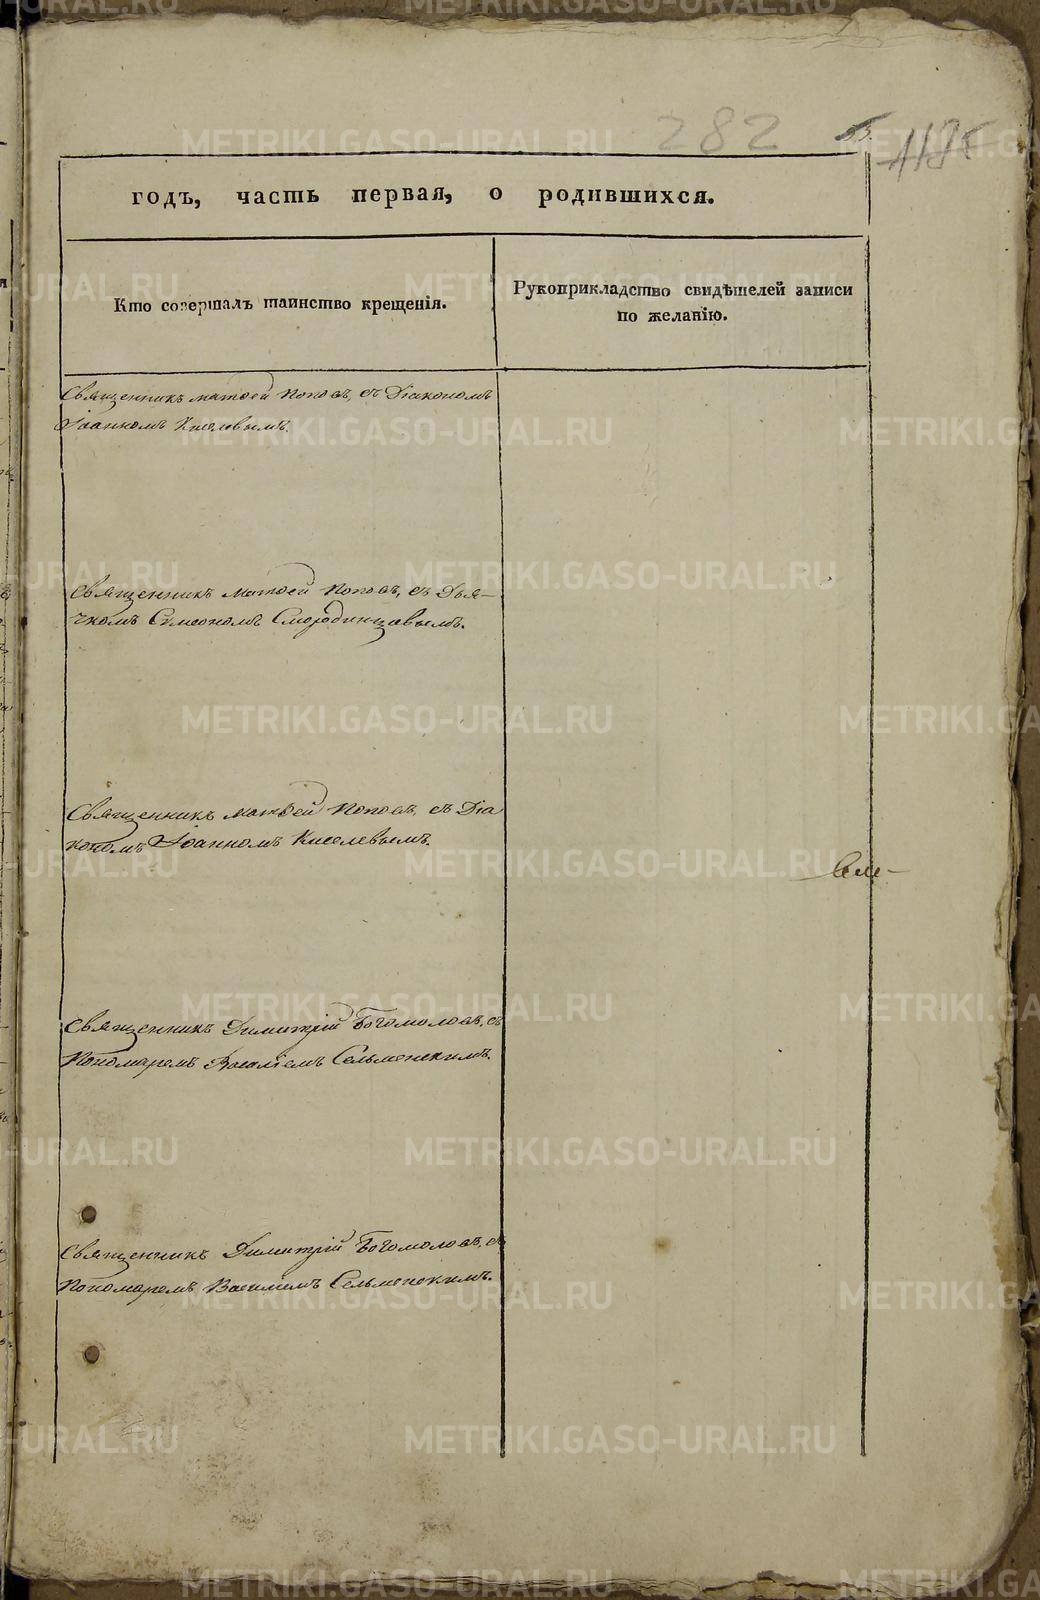 282
годъ, часть первая, о родившихся.
Кто совершалъ таинство крещенія.
Рукоприкладство свидѣтелей записи
по желанію.
Священникъ Матѳей Поповъ, съ Діакономъ
Іоанномъ Киселевымъ.
Священникъ Матѳей Поповъ, съ Дья-
чкомъ Сѵмеономъ Смородинцовымъ.
Священникъ Матѳей Поповъ, съ Діа
кономъ Іоанномъ Киселевымъ.
Священникъ Димитрій Богомоловъ, съ
Пономаремъ Василіемъ Сельменскимъ.
Священникъ Димитрій Богомоловъ, съ
Пономаремъ Василіемъ Сельменскимъ.
METRIKI.GASO-URAL.RU